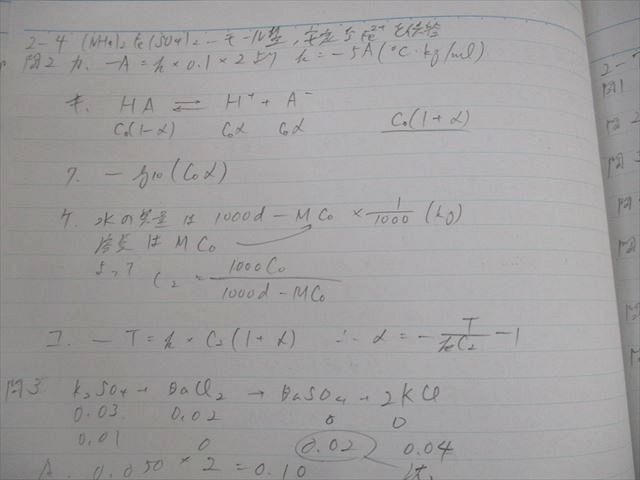 2-4 (NH4)2Fe(SO4)2 … モール塩, 安定なFe2+を供給
問2 カ. -A = k × 0.1 × 2 より k = -5A (℃・kg/mol)
キ. HA ⇄ H+ + A-
C0(1-α) C0α C0α C0(1+α)
ク. -log10(C0α)
ケ. 水の質量は 1000d - MC0 × 1/1000 (kg)
溶質は MC0
よって C2 = 1000C0 / 1000d - MC0
コ. -T = k × C2(1+α) ∴ α = - T/kC2 - 1
問3 K2SO4 + BaCl2 → BaSO4 + 2KCl
0.03 0.02 0 0
0.01 0 0.02 0.04
A. 0.050 × 2 = 0.10